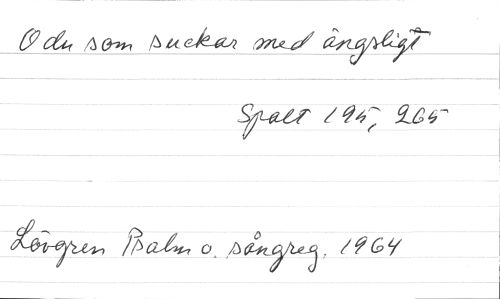 O du som suckar med ängsligt
Spalt 195, 265
Lövgren Psalm o. sångreg. 1964